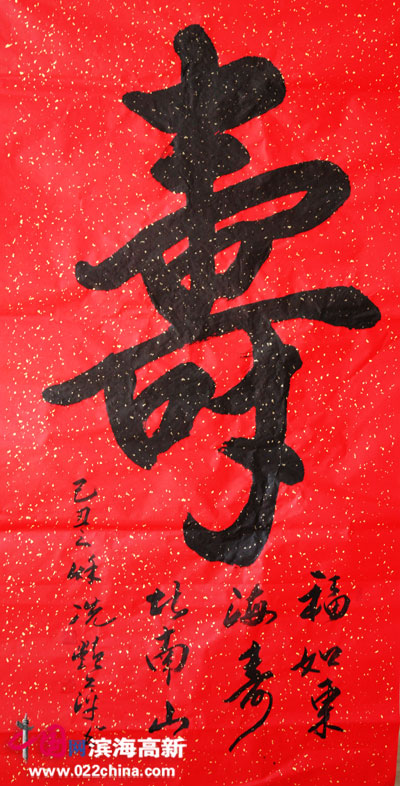 壽
福如東
海壽
比南山
己丑之秋
中国网 滨海高新
www.022china.com